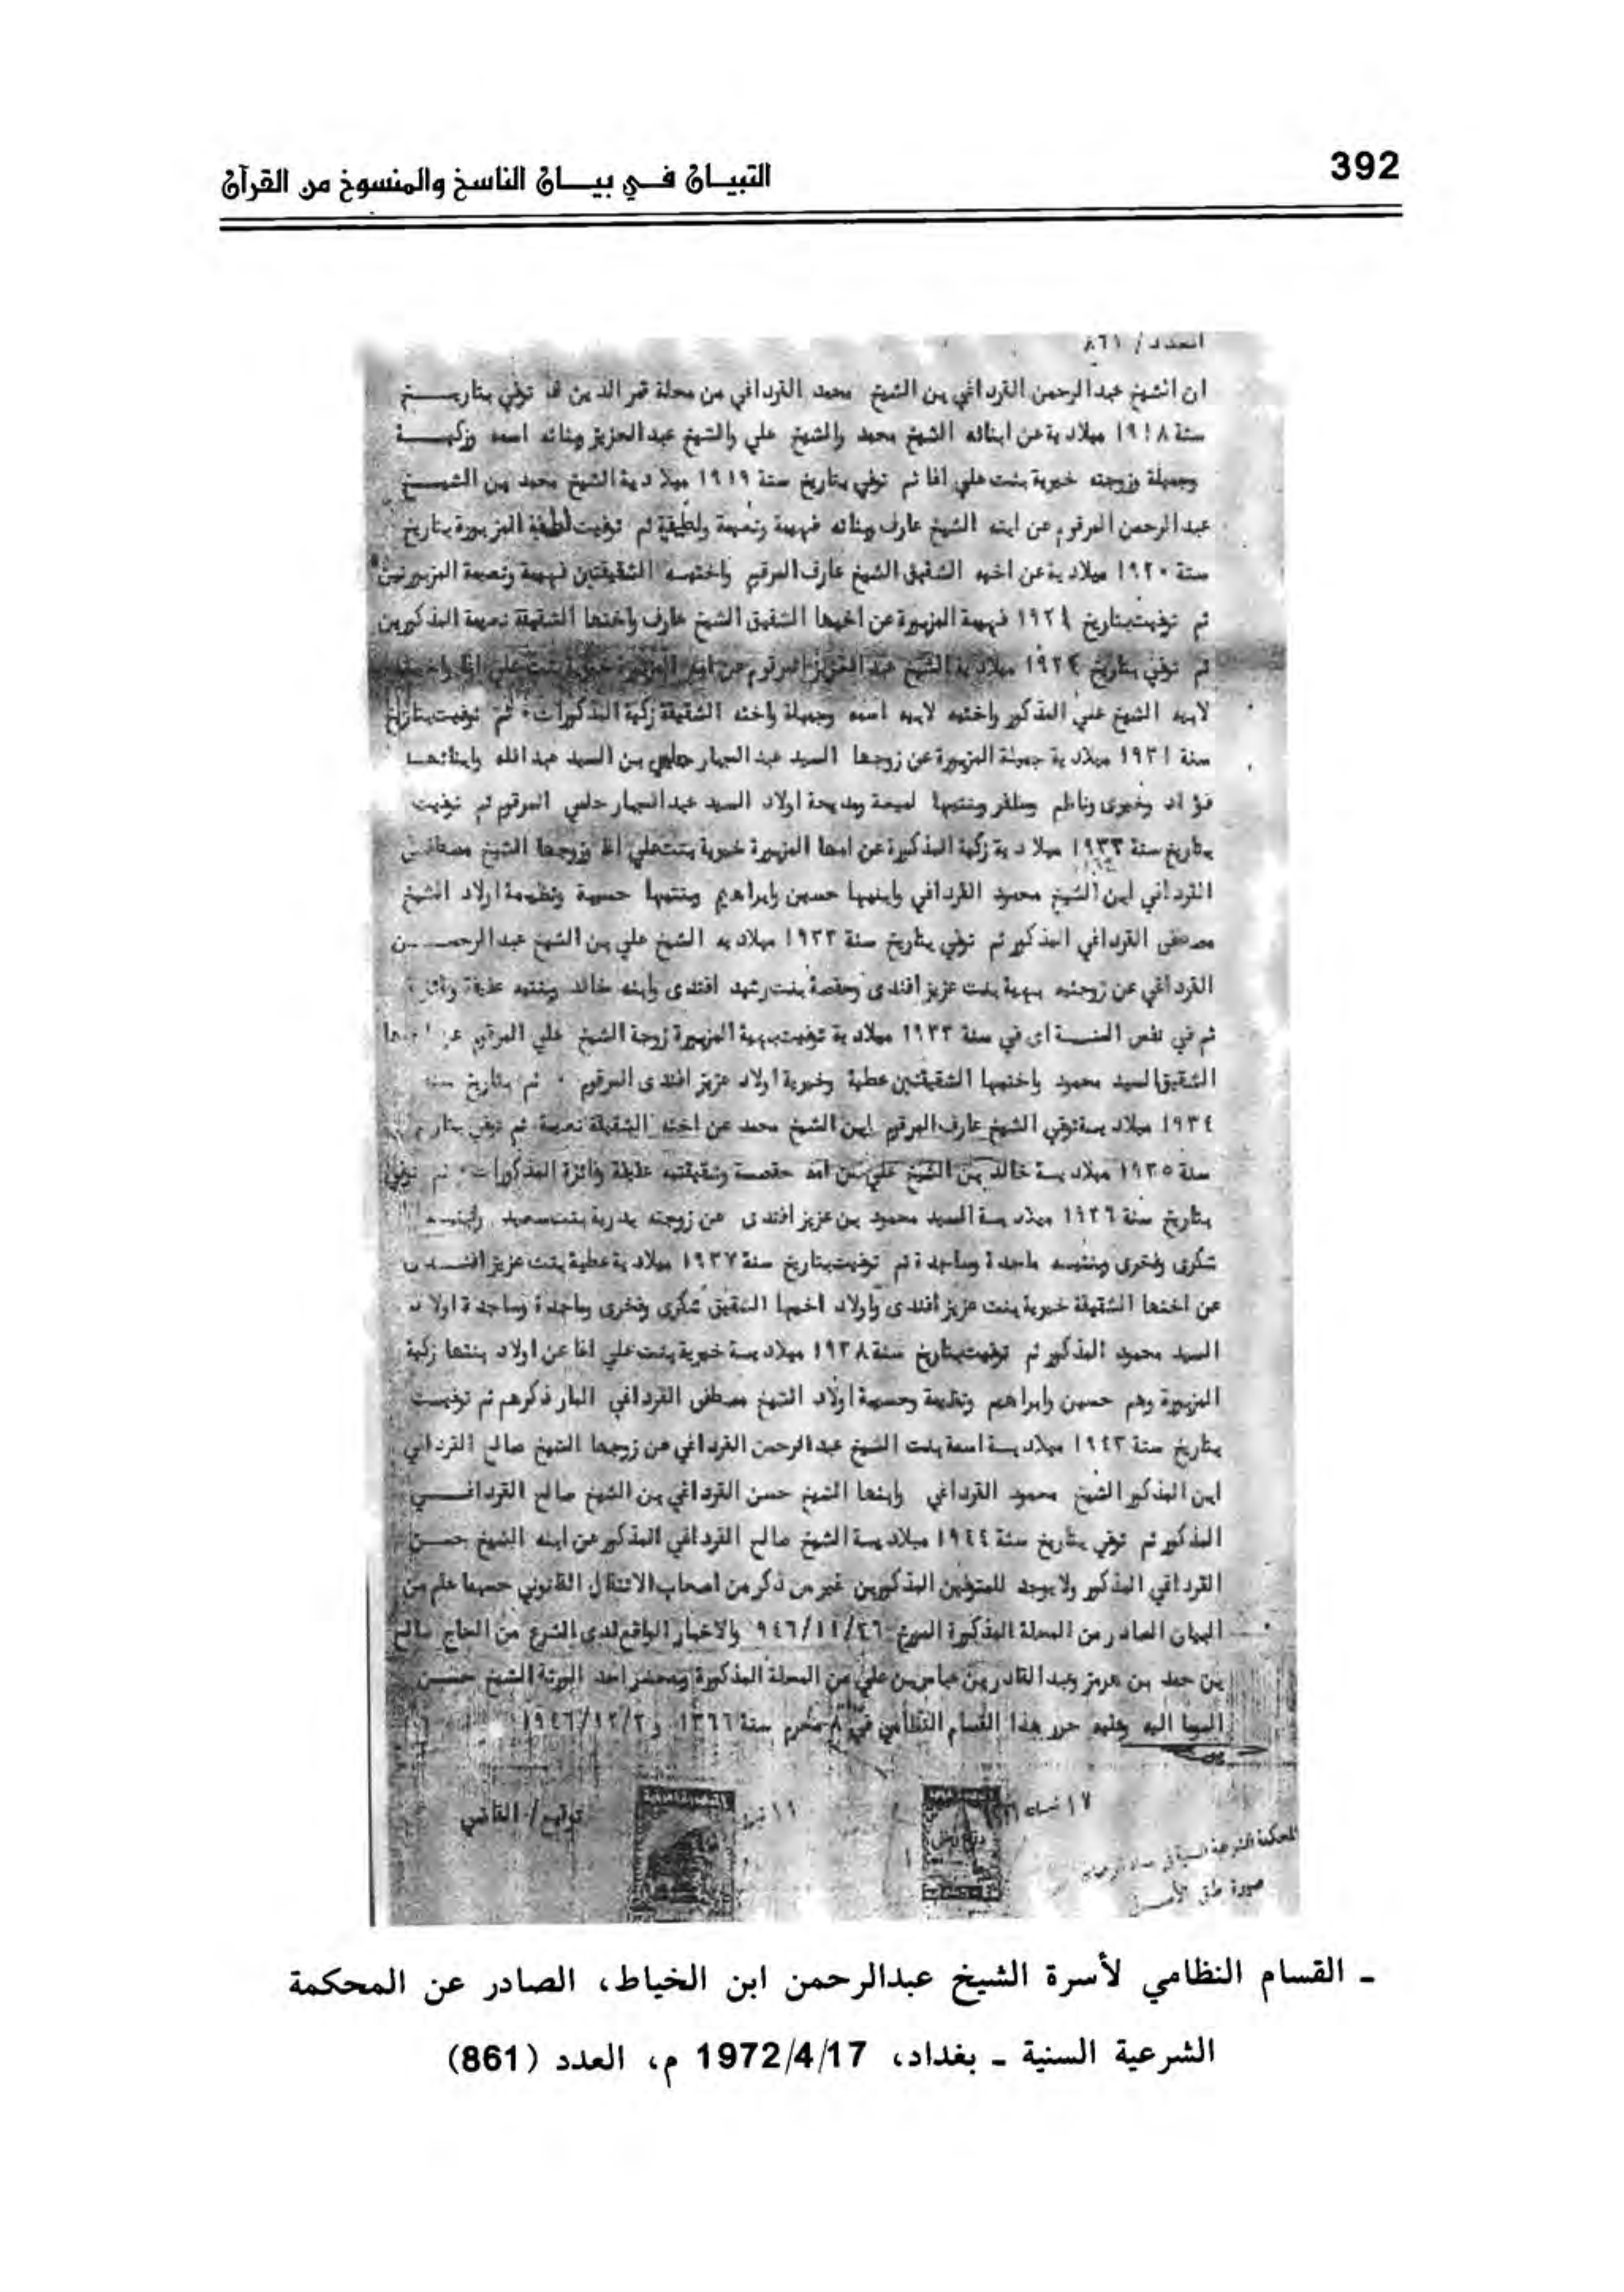 392
التبيان في بيان الناسخ والمنسوخ من القرآن
العدد / ٨٦١
ان الشيخ عبدالرحمن القرداغي بن الشيخ محمد القرداغي من محلة قمر الدين توفي بتاريخ
سنة ١٩١٨ ميلادية عن ابنائه الشيخ محمد والشيخ علي والشيخ عبدالعزيز وبناته اسمه وزكية
وجميلة وزوجته خيرية بنت علي اغا ثم توفي بتاريخ سنة ١٩١٩ ميلادية الشيخ محمد بن الشيخ
عبدالرحمن المرقوم عن ابنه الشيخ عارف وبناته فهيمة ونعيمة ولطيفة ثم توفيت لطيفة المزبورة بتاريخ
سنة ١٩٢٠ ميلادية عن اخيه الشقيق الشيخ عارف المرقوم واختيه الشقيقتين فهيمة ونعيمة المزبورتين
ثم توفيت بتاريخ فهيمة المزبورة عن اخيها الشقيق الشيخ عارف واختها الشقيقة نعيمة المذكورين
ثم توفي بتاريخ ١٩٢٤ ميلادية الشيخ عبدالعزيز المرقوم عن امه المزبورة خيرية بنت علي اغا
لابيه الشيخ علي المذكور واختيه لابيه اسمه وجميلة واخته الشقيقة زكية المذكورات ثم توفيت بتاريخ
سنة ١٩٣١ ميلادية جميلة المزبورة عن زوجها السيد عبدالجبار حلمي بن السيد عبدالله وابنائها
فؤاد وخيرى وناظم ومظفر وبنتيها لميعة ومديحة اولاد السيد عبدالجبار حلمي المرقوم ثم توفيت
بتاريخ سنة ١٩٣٣ ميلادية زكية المذكورة عن امها المزبورة خيرية بنت علي اغا وزوجها الشيخ مصطفى
القرداغي ابن الشيخ محمود القرداغي وابنيها حسين وابراهيم وبنتيها حسيبة ونظيمة اولاد الشيخ
مصطفى القرداغي المذكور ثم توفي بتاريخ سنة ١٩٣٣ ميلاديه الشيخ علي بن الشيخ عبدالرحمن
القرداغي عن زوجتيه بهية بنت عزيز افندى وحفصة بنت رشيد افندى وابنه خالد وبنتيه عفيفة وفائزة
ثم في نفس السنة اى في سنة ١٩٣٣ ميلادية توفيت بهية المزبورة زوجة الشيخ علي المرقوم عن اخيها
الشقيق السيد محمود واختيها الشقيقتين عطية وخيرية اولاد عزيز افندى المرقوم ثم بتاريخ سنة
١٩٣٤ ميلادية توفي الشيخ عارف المرقوم ابن الشيخ محمد عن اخته الشقيقة نعيمة ثم توفي بتاريخ
سنة ١٩٣٥ ميلادية خالد بن الشيخ علي عن امه حفصة وشقيقتيه عفيفة وفائزة المذكورات ثم توفي
بتاريخ سنة ١٩٣٦ ميلادية السيد محمود بن عزيز افندى عن زوجته بدرية بنت سعيد وابنيه
شكرى وفخرى وبنتيه ماجدة وساجدة ثم توفيت بتاريخ سنة ١٩٣٧ ميلادية عطية بنت عزيز افندى
عن اختها الشقيقة خيرية بنت عزيز افندى واولاد اخيها الشقيق شكرى وفخرى وماجدة وساجدة اولاد
السيد محمود المذكور ثم توفيت بتاريخ سنة ١٩٣٨ ميلادية خيرية بنت علي اغا عن اولاد بنتها زكية
المزبورة وهم حسين وابراهيم ونظيمة وحسيبة اولاد الشيخ مصطفى القرداغي المار ذكرهم ثم توفيت
بتاريخ سنة ١٩٤٣ ميلادية اسمة بنت الشيخ عبدالرحمن القرداغي عن زوجها الشيخ صالح القرداغي
ابن المذكور الشيخ محمود القرداغي وابنها الشيخ حسن القرداغي بن الشيخ صالح القرداغي
المذكور ثم توفي بتاريخ سنة ١٩٤٤ ميلادية الشيخ صالح القرداغي المذكور عن ابنه الشيخ حسن
القرداغي المذكور ولا يوجد للمتوفين المذكورين غير من ذكر من اصحاب الانتقال القانوني حسبما علم من
البيان الصادر من المحلة المذكورة المؤرخ ٩٤٦/١١/٢٦ والاخبار الواقع لدى الشرع من الحاج صالح
بن حمد بن هرمز وعبدالقادر بن عباس بن علي من المحلة المذكورة وبمحضر احد الورثة الشيخ حسن
الموما اليه وعليه حرر هذا القسام النظامي في ٨ محرم سنة ١٣٦٦ و ١٩٤٦/١٢/٢
توقيع / القاضي
صورة طبق الأصل
ـ القسام النظامي لأسرة الشيخ عبدالرحمن ابن الخياط، الصادر عن المحكمة
الشرعية السنية ـ بغداد، 1972/4/17 م، العدد (861)